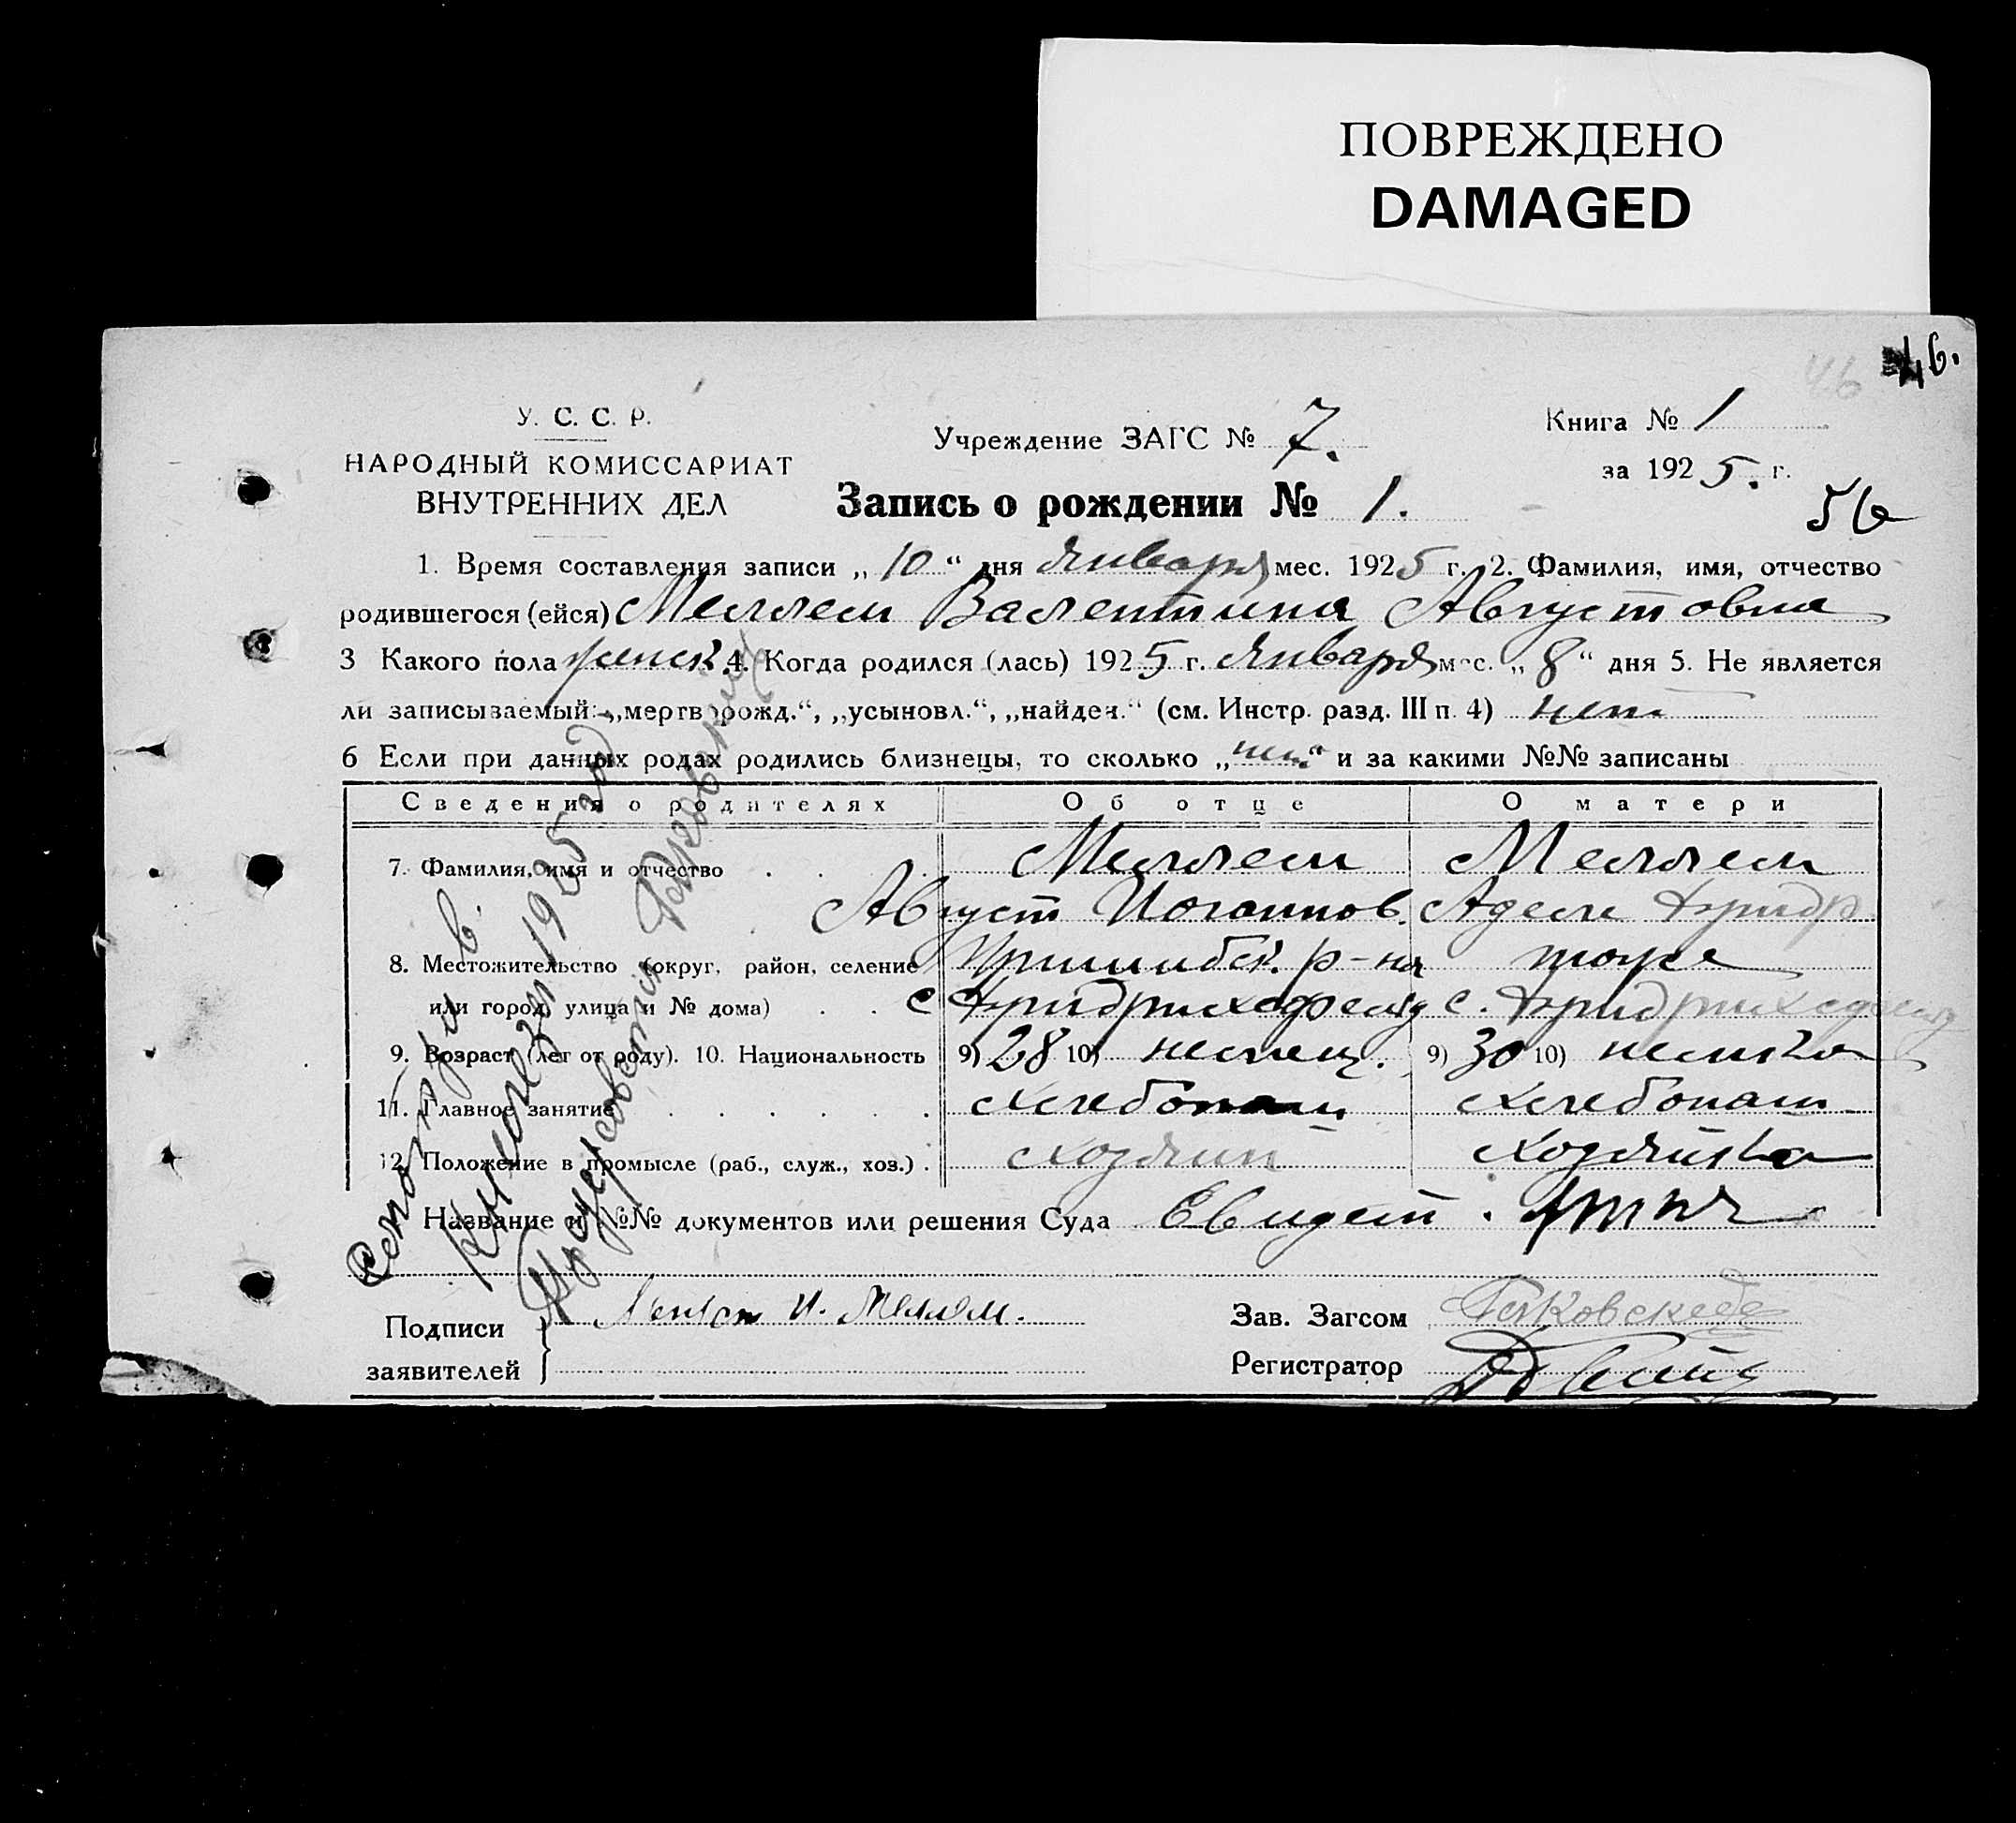 ПОВРЕЖДЕНО
DAMAGED
46 46.
У. С. С. Р.
НАРОДНЫЙ КОМИССАРИАТ
ВНУТРЕННИХ ДЕЛ
Учреждение ЗАГС № 7.
Книга № 1
за 1925. г.
Запись о рождении № 1.
56
1. Время составления записи „10“ дня января мес. 1925 г. 2. Фамилия, имя, отчество
родившегося (ейся) Меллем Валентина Августовна
3 Какого пола женск. 4. Когда родился (лась) 1925 г. января мес. „8“ дня 5. Не является
ли записываемый:-„мертворожд.“, „усыновл.“, „найден.“ (см. Инстр. разд. III п. 4) нет
6 Если при данных родах родились близнецы, то сколько „нет“ и за какими №№ записаны
Сведения о родителях Об отце О матери
7. Фамилия, имя и отчество Меллем Меллем
Август Иоганнов. Аделе Фридр
8. Местожительство (округ, район, селение Пришибск. р-на тоже
или город, улица и № дома) с Фридрихсфельд с. Фридрихсфельд
9. Возраст (лет от роду). 10. Национальность 9) 28 10) немец. 9) 30 10) немка
11. Главное занятие хлебопаш хлебопаш
12. Положение в промысле (раб., служ., хоз.) хозяин хозяйка
Название и №№ документов или решения Суда
Подписи
заявителей
И. Меллем.
Зав. Загсом
Регистратор
1925